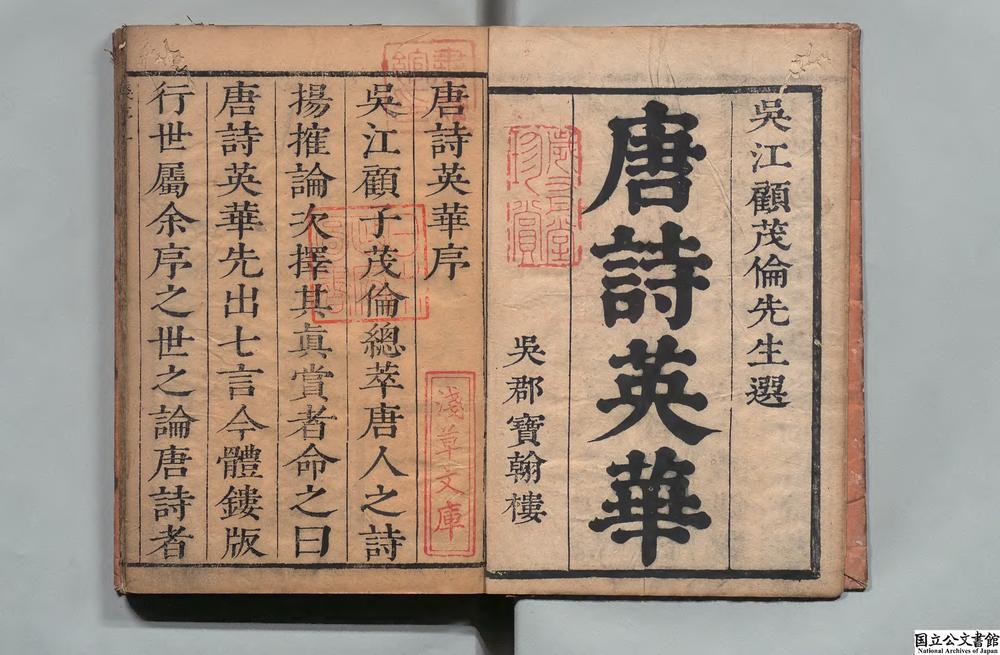 吳江顧茂倫先生選
唐詩英華
吳郡寶翰樓
唐詩英華序
吳江顧子茂倫總萃唐人之詩
揚搉論次擇其真賞者命之曰
唐詩英華先出七言今體鏤版
行世屬余序之世之論唐詩者
淺草文庫
国立公文書館
National Archives of Japan